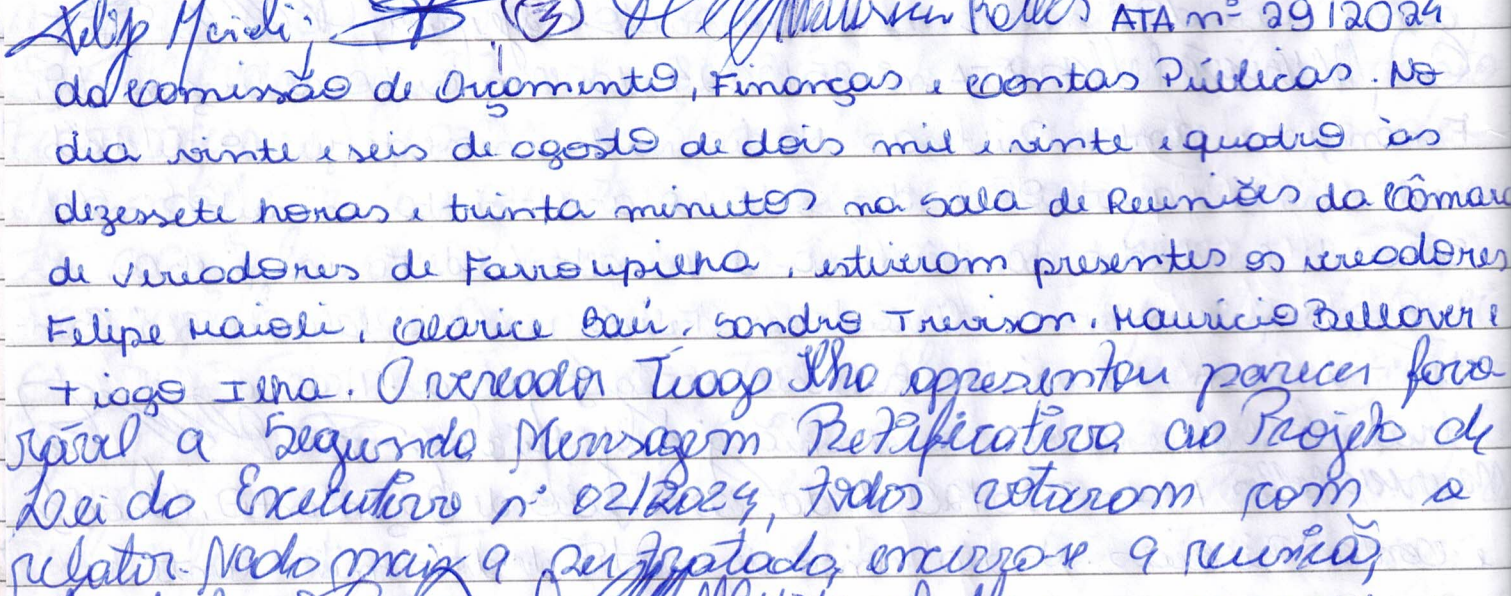 Felip Maioli; (3) ATA nº 29/2024
da Comissão de Orçamento, Finanças e Contas Públicas. No
dia vinte e seis de agosto de dois mil e vinte e quatro às
dezessete horas e trinta minutos na sala de Reuniões da Câmara
de vereadores de Farroupilha, estiveram presentes os vereadores
Felipe Maioli, Clarice Baú, Sandro Trevisan, Maurício Bellaver e
Tiago Ilha. O vereador Tiago Ilha apresentou parecer favo
rável a Segunda Mensagem Retificativa ao Projeto de
Lei do Executivo nº 02/2024, todos votaram com o
relator. Nada mais a ser tratado, encerro-se a reunião,